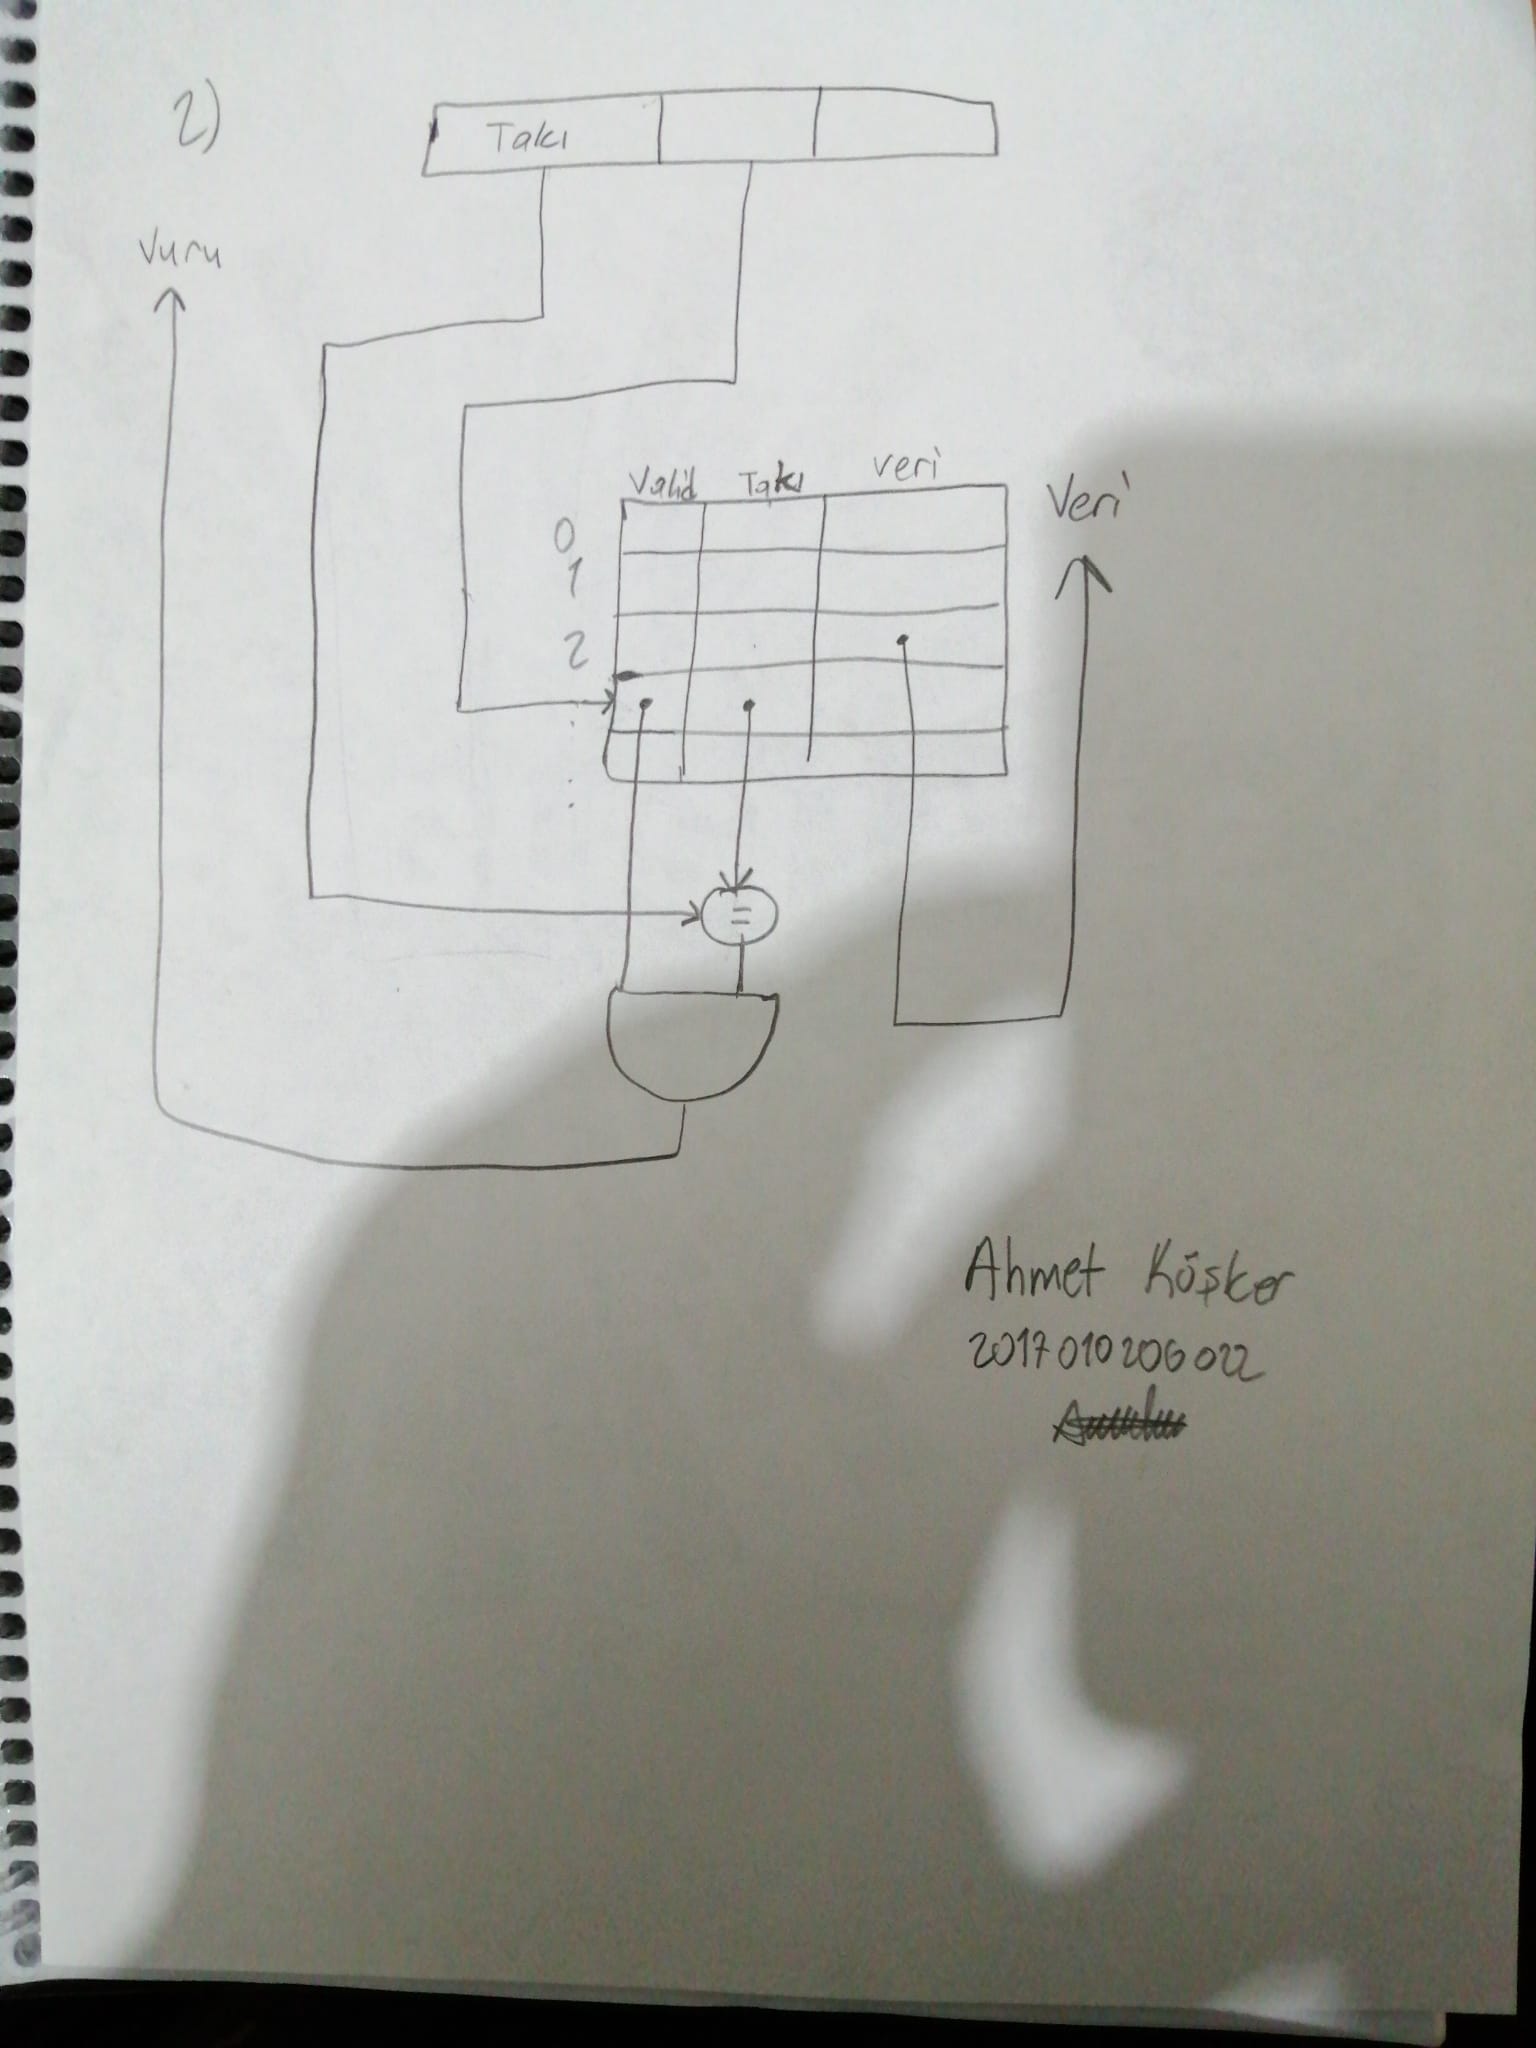 2)
Takı
Vuru
Valid Takı veri
Veri
0
1
2
=
Ahmet Köşker
2017010206022